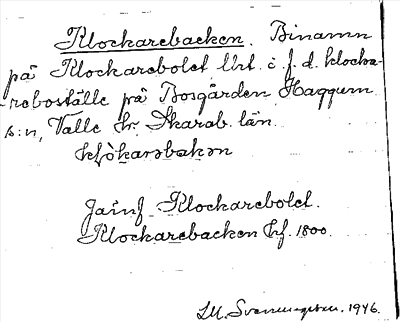 Klockarebacken. Binamn
på Klockarebolet lht. i f. d. klocka-
-reboställe på Bosgården, Häggum
s:n, Valle hr. Skarab. län.
Jämf. Klockarebolet.
Klockarebacken hf. 1800.
1946.